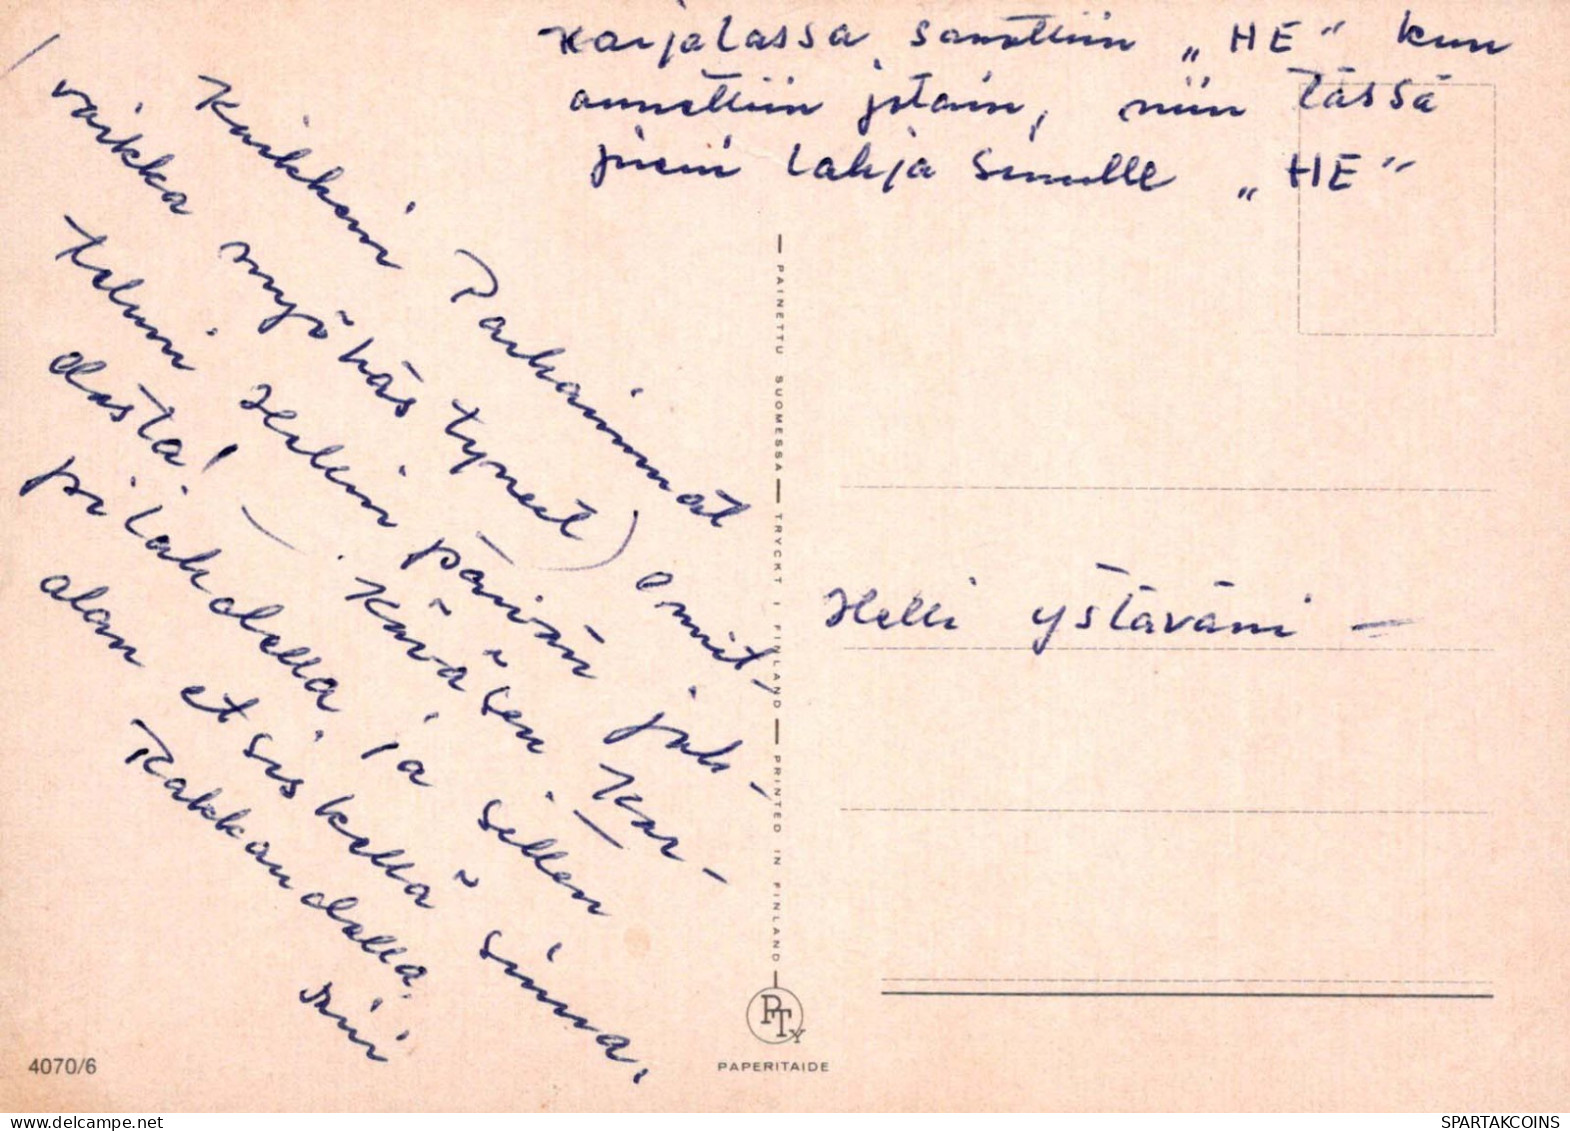 Karjalassa sanottiin „HE" kun
annettiin jotain, niin tässä
pieni lahja Sinulle „HE"
Kaikkein Parhaimmat
(vaikka myöhästyneet) onnit-
teluni Helin päivän juh-
dasta! – Käväsen Kar-
pilahdella ja sillen
alan etsiskellä sinua.
Rakkaudella,
Helli ystäväni –
PAINETTU SUOMESSA — TRYCKT I FINLAND — PRINTED IN FINLAND
PTy
PAPERITAIDE
4070/6
SPARTAKCOINS